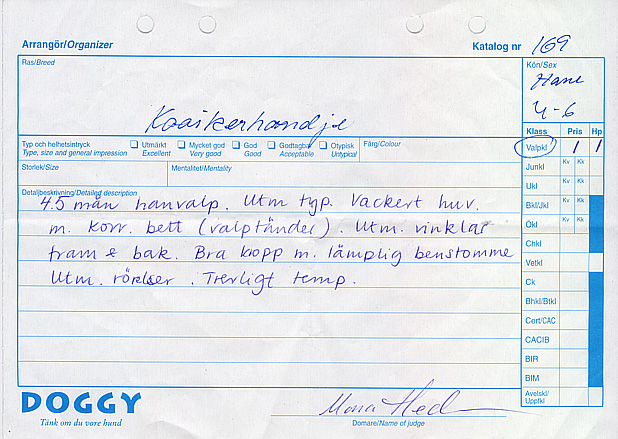 Arrangör/Organizer
Katalog nr 169
Ras/Breed
Kooikerhondje
Kön/Sex
Hane
4-6
Typ och helhetsintryck
Type, size and general impression
Utmärkt
Excellent
Mycket god
Very good
God
Good
Godtagbar
Acceptable
Otypisk
Untypical
Färg/Colour
Storlek/Size
Mentalitet/Mentality
Detaljbeskrivning/Detailed description
4.5 mån hanvalp. Utm typ. Vackert huv.
m. korr. bett (valptänder). Utm. vinklar
fram & bak. Bra kropp m. lämplig benstomme
Utm. rörelser. Trevligt temp.
Klass Pris Hp
Valpkl 1 1
Junkl Kv Kk
Ukl Kv Kk
Bkl/Jkl Kv Kk
Ökl Kv Kk
Chkl
Vetkl
Ck
Bhkl/Btkl
Cert/CAC
CACIB
BIR
BIM
Avelskl/
Uppfkl
DOGGY
Tänk om du vore hund
Mona Hed
Domare/Name of judge